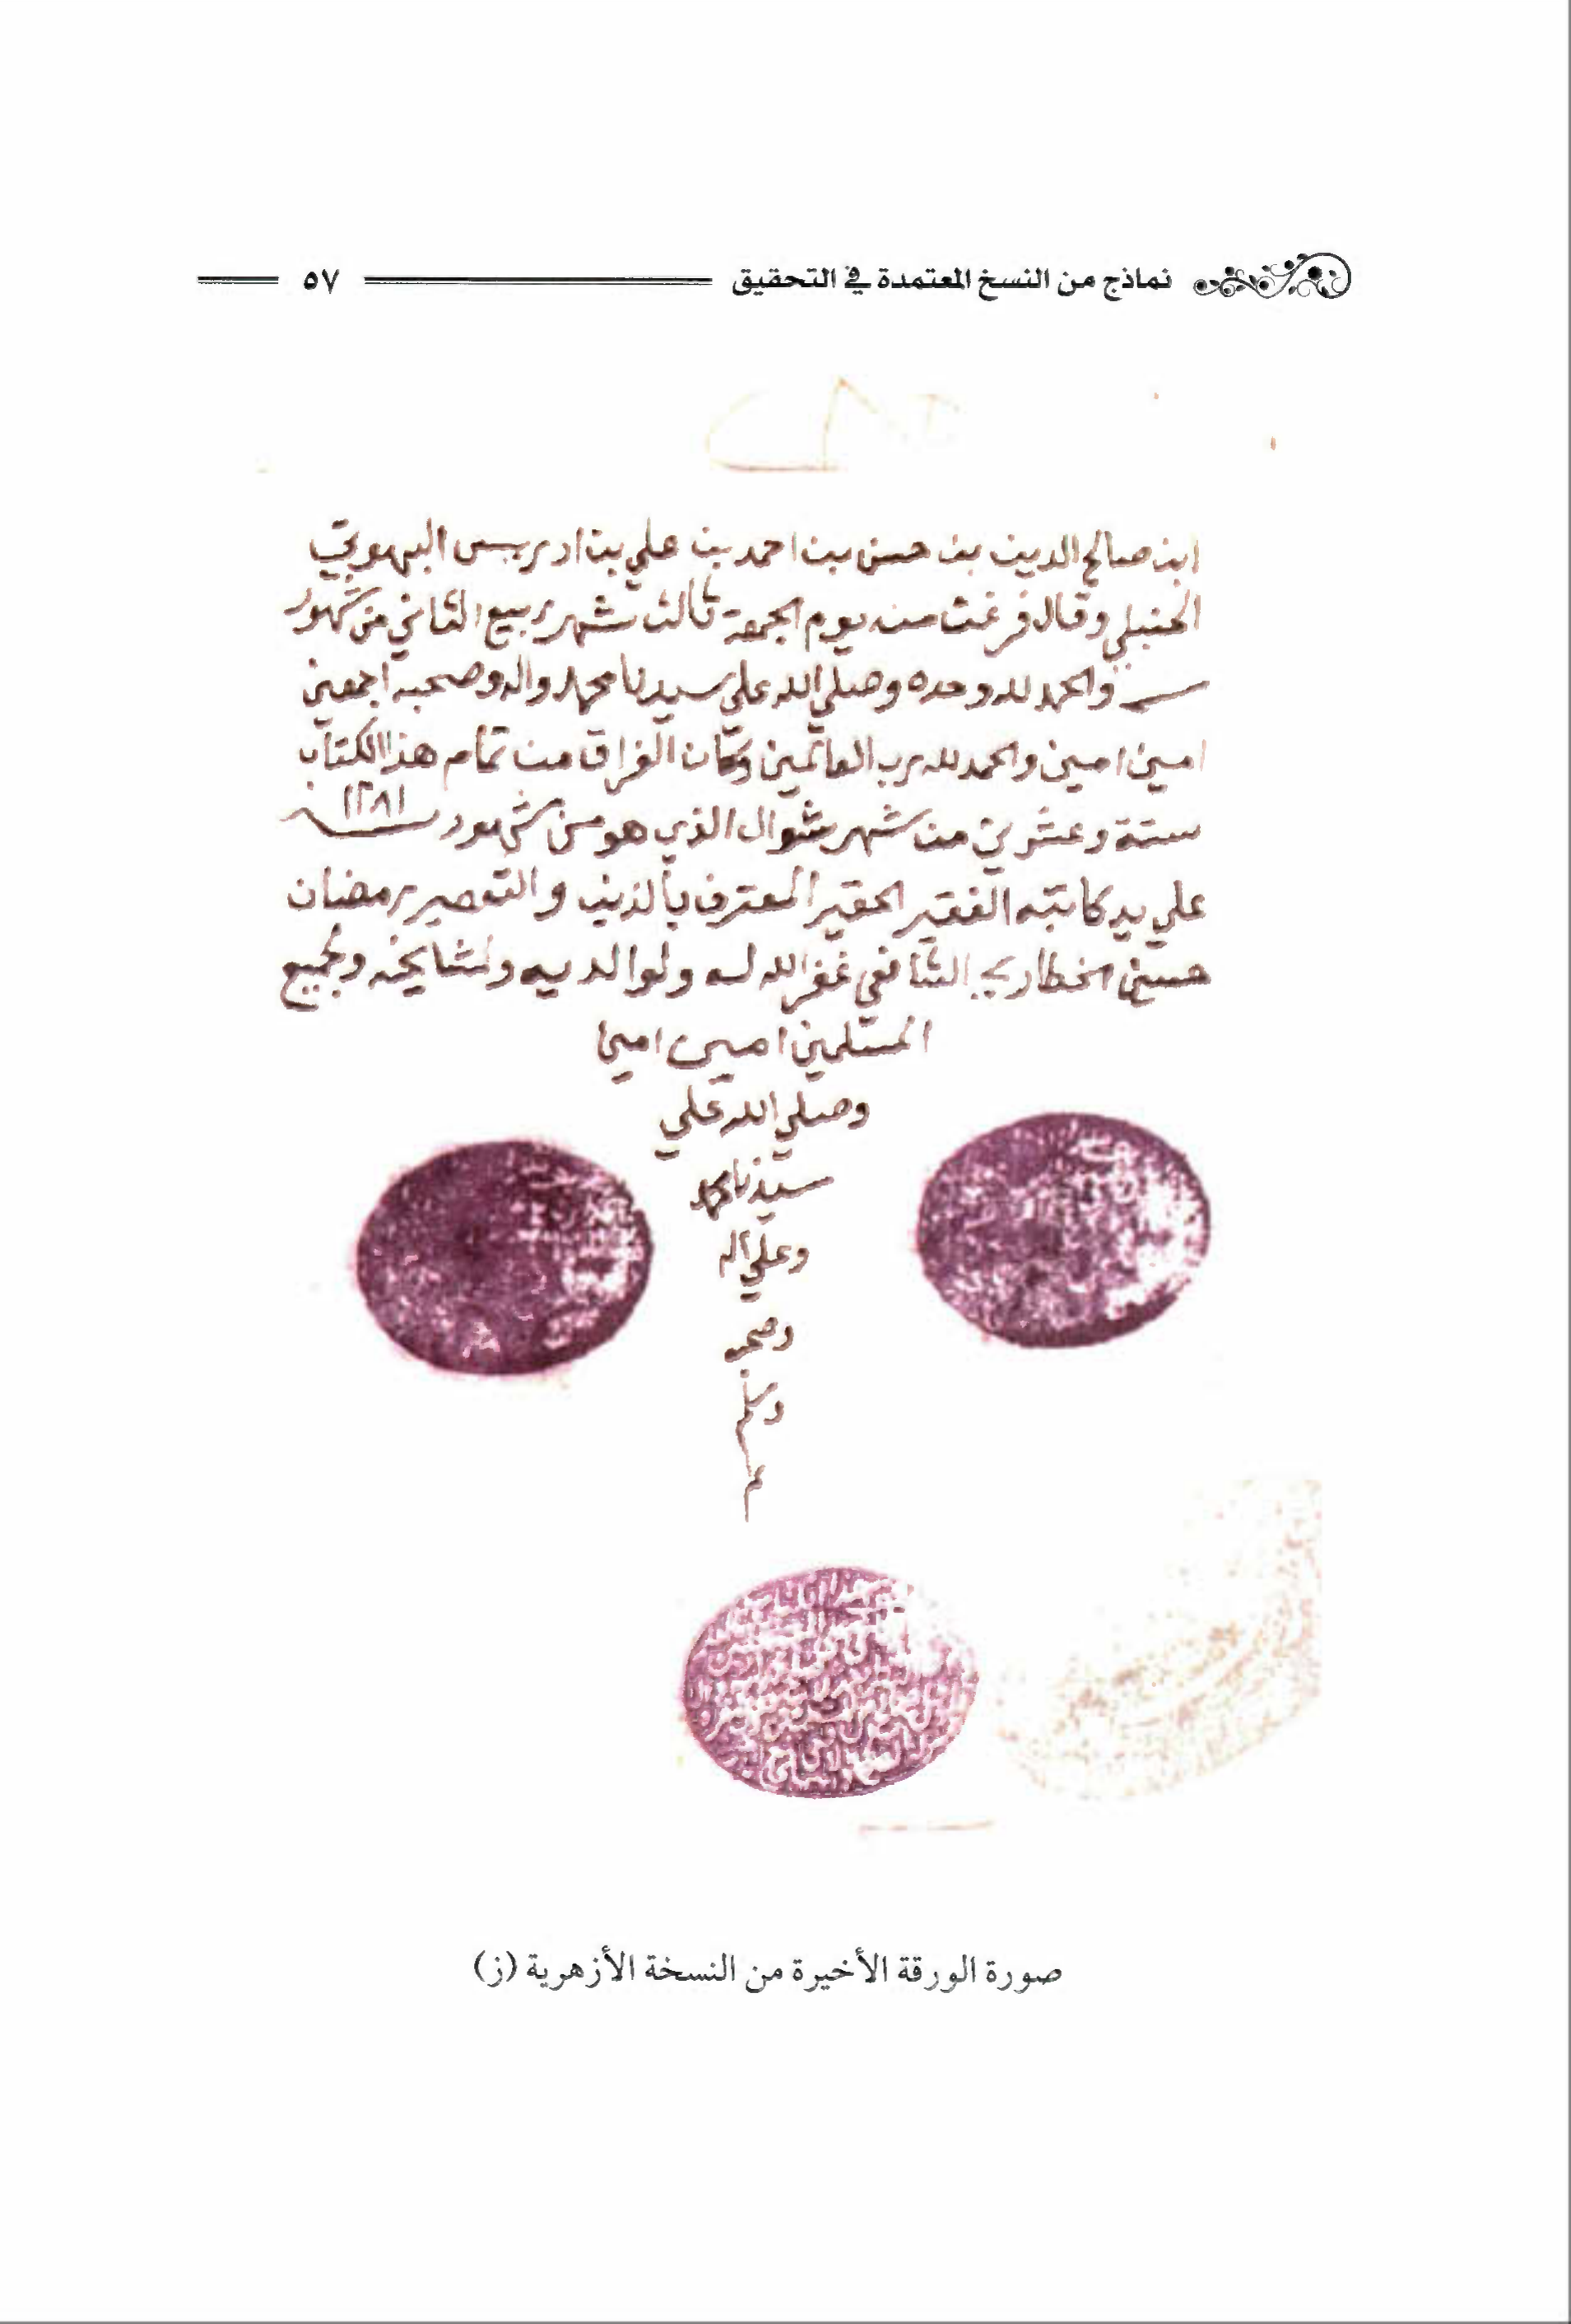 نماذج من النسخ المعتمدة في التحقيق ٥٧
ابن صالح الدين بن حسن بن احمد بن علي بن ادريس البهوتي
الحنبلي وقال فرغت منه يوم الجمعة ثالث شهر ربيع الثاني من شهور
والحمد لله وحده وصلي الله علي سيدنا محمد واله وصحبه اجمعين
امين امين والحمد لله رب العالمين وكان الفراق من تمام هذا الكتاب
ستة وعشرين من شهر شوال الذي هو من شهور ١٢٨١
علي يد كاتبه الفقير الحقير المعترف بالذنب والتقصير رمضان
حسين الشافعي غفر الله له ولوالديه ولمشايخه ولجميع
المسلمين امين امين
وصلي الله علي
سيدنا محمد
وعلي اله
وصحبه
وسلم
م
صورة الورقة الأخيرة من النسخة الأزهرية (ز)